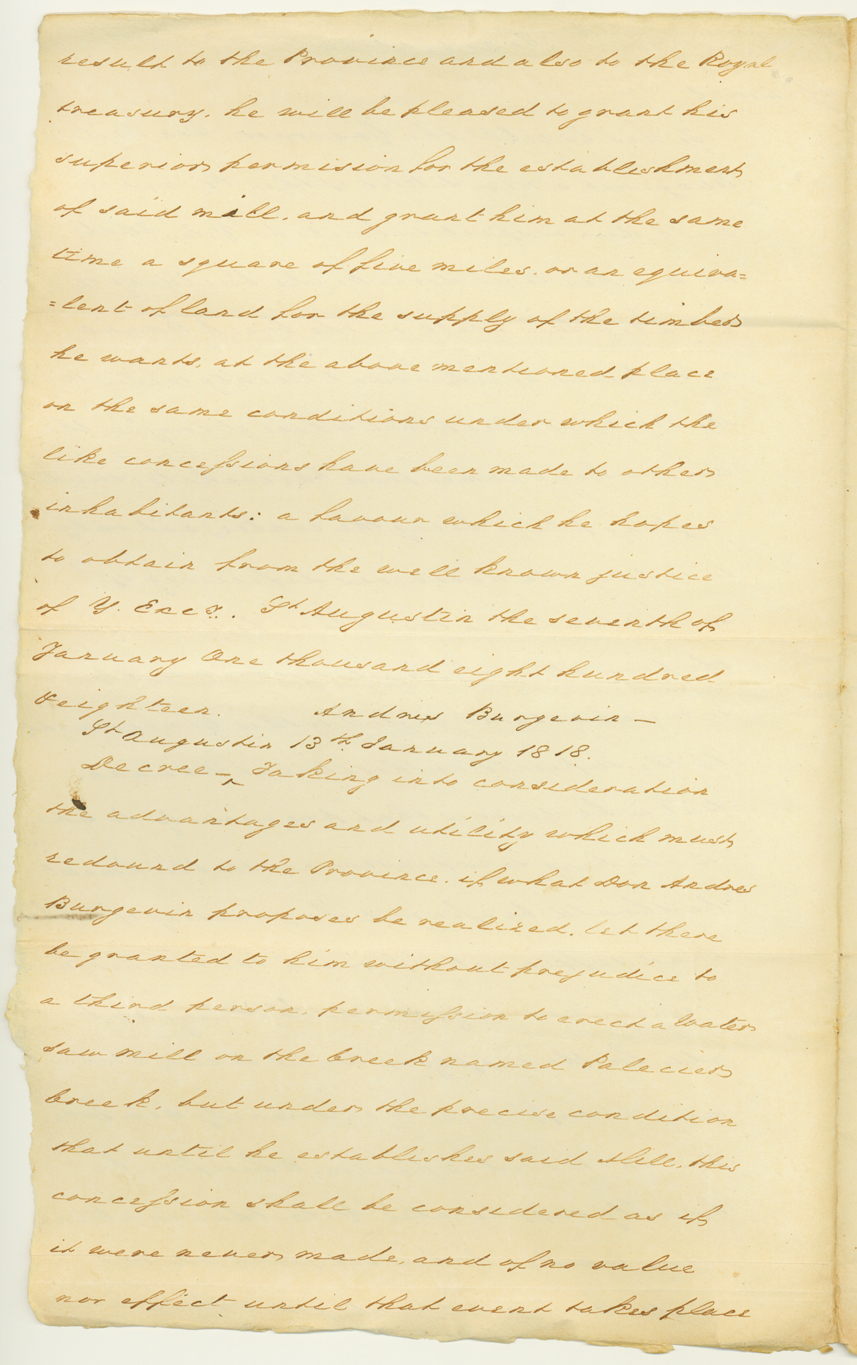 result to the Province and also to the Royal
treasury. he will be pleased to grant his
superior permision for the establishment
of said mill. and grant him at the same
time a square of five miles. or an equiva=
=lent of land for the supply of the timber
he wants, at the above mentioned place
on the same conditions under which the
like concessions have been made to other
inhabitants: a favour which he hopes
to obtain from the well known justice
of Y. Excy. St Augustin the seventh of
January One thousand eight hundred
& eighteen. Andres Burgevin —
St Augustin 13th January 1818.
Decree — ^ Taking into consideration
the advantages and utility which must
redound to the Province. if what Don Andres
Burgevin proposes be realized. let there
be granted to him without prejudice to
a third person. permission to erect a Water
saw mill on the Creek named Palecier
Creek. but under the precise condition
that until he establishes said Mill. this
concession shall be considered as if
it were never made, and of no value
nor effect until that event takes place